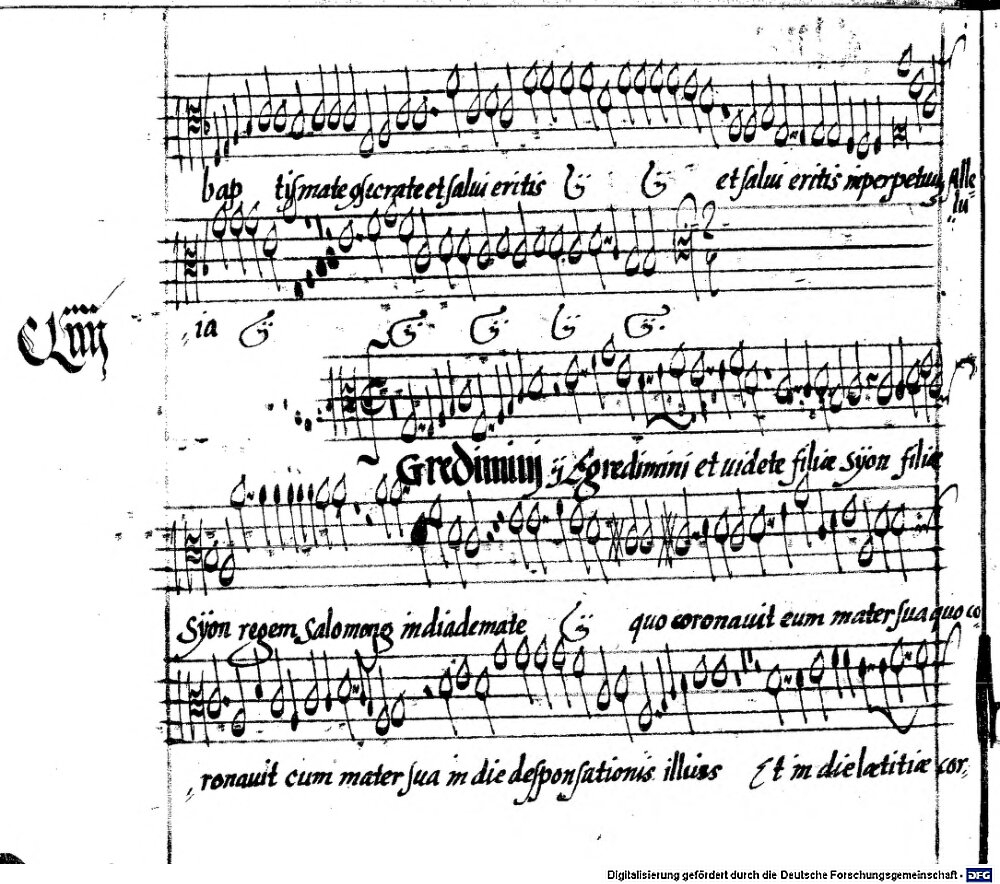 bap tismate consecrate et salui eritis ij ij et salui eritis in perpetuum Alle
lu
ia ij ij ij ij ij
CLiiij
Gredimini ij Egredimini et uidete filiæ Syon filiæ
Syon regem Salomonem in diademate ij quo coronauit eum mater sua quo co
ronauit eum mater sua in die desponsationis illius Et in die lætitiæ cor
Digitalisierung gefördert durch die Deutsche Forschungsgemeinschaft - DFG